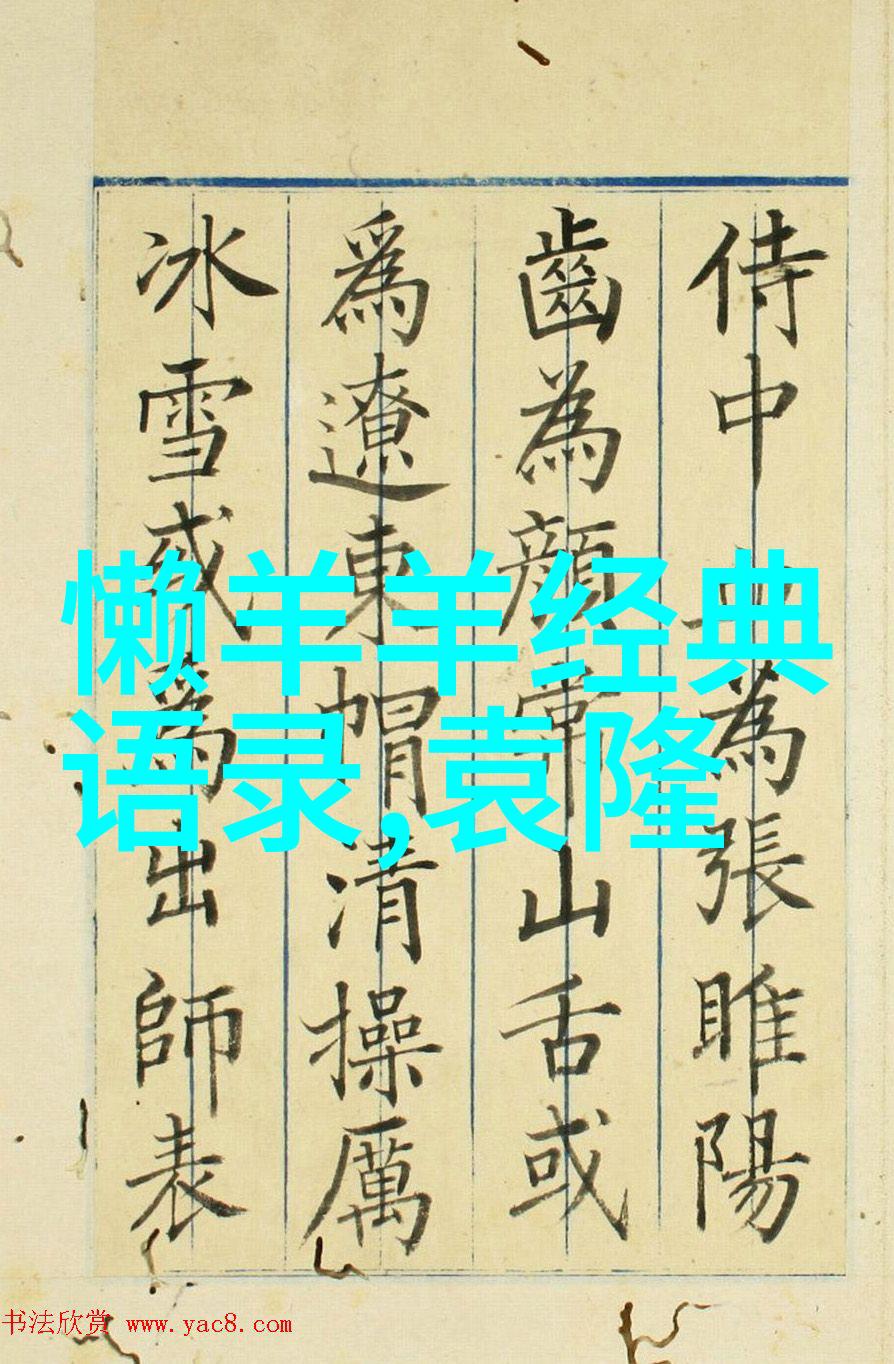 侍中為張睢陽
齒為顏常山舌或
爲遼東帽清操厲
冰雪或爲出師表
懒羊羊经典
语录,袁隆
书法欣赏 www.yac8.com